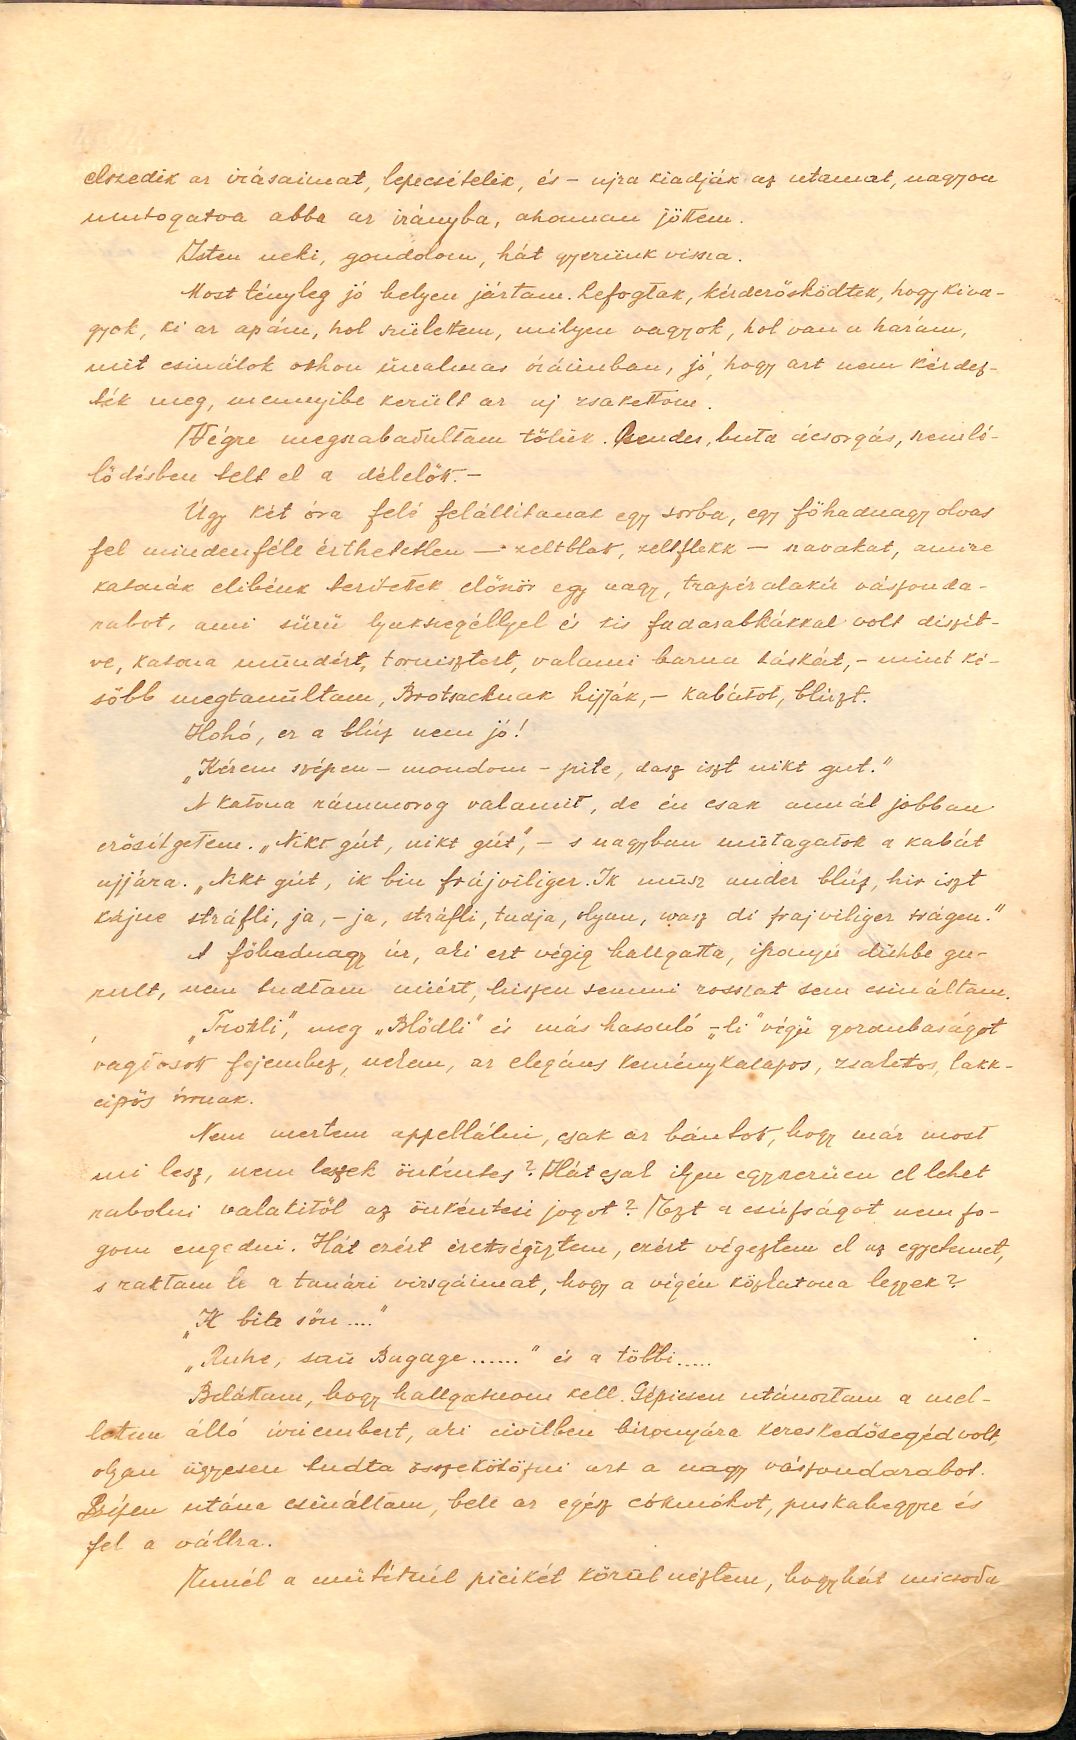 elszedik az irásaimat, lepecsételik, és – ujra kiadják az utamat, nagyon
mutogatva abba az irányba, ahonnan jöttem.
Isten neki, gondolom, hát gyerünk vissza.
Most tényleg jó helyen jártam. Lefogtak, kérdezősködtek, hogy ki va-
gyok, ki az apám, hol születtem, milyen vagyok, hol van a hazám,
mit csinálok othon unalmas óráimban, jó, hogy azt nem kérdez-
ték meg, mennyibe került az uj zsakettom.
Végre megszabadultam tőlük. Csendes, buta ácsorgás, szemlő-
lődésben telt el a délelőtt. –
Úgy két óra felé felállitanak egy sorba, egy főhadnagy olvas
fel mindenféle érthetetlen – zeltblat, zeltflekk – szavakat, amire
katonák elibénk teritettek először egy nagy, trapéz alakú vászonda-
rabot, ami sürü lyukszegéllyel és kis fadarabkákkal volt diszit-
ve, katona mundért, tornisztert, valami barna táskát, – mint ké-
sőbb megtanultam, Brotsacknak hijják, – kabátot, blúzt.
Hohó, ez a blúz nem jó!
„Kérem szépen – mondom – pite, dasz iszt nikt gut."
A katona rámmorog valamit, de én csak annál jobban
erősítgetem. „Nikt gút, nikt gút", – s nagyban mutagatok a kabát
ujjára. „Nikt gút, ik bin frájviliger. Ik musz ander blúz, hir iszt
kájne stráfli, ja, – ja, stráfli, tudja, olyan, wasz di frajviliger trágen."
A főhadnagy úr, aki ezt végig hallgatta, iszonyú dühbe gu-
rult, nem tudtam miért, hiszen semmi rosszat sem csináltam.
„Trotli", meg „Blödli" és más hasonló „-li" végü gorombaságot
vagdosott fejemhez, nekem, az elegáns keménykalapos, zsakettos, lakk-
cipős úrnak.
Nem mertem appellálni, csak az bántott, hogy már most
mi lesz, nem leszek önkéntes? Hát csak ilyen egyszerüen el lehet
rabolni valakitől az önkéntesi jogot? Ezt a csúfságot nem fo-
gom engedni. Hát ezért érettségiztem, ezért végeztem el az egyetemet,
s raktam le a tanári vizsgáimat, hogy a végén közkatona legyek?
„Ik bite sön ...."
„Ruhe, sau Bagage ......" és a többi .....
Beláttam, hogy hallgatnom kell. Gépiesen utánoztam a mel-
lettem álló úriembert, aki civilben bizonyára kereskedősegéd volt,
olyan ügyesen tudta összekötözni azt a nagy vászondarabot.
Szépen utána csináltam, bele az egész cókmókot, puskahegyre és
fel a vállra.
Ennél a mütétnél picikét körül néztem, hogy hát micsoda